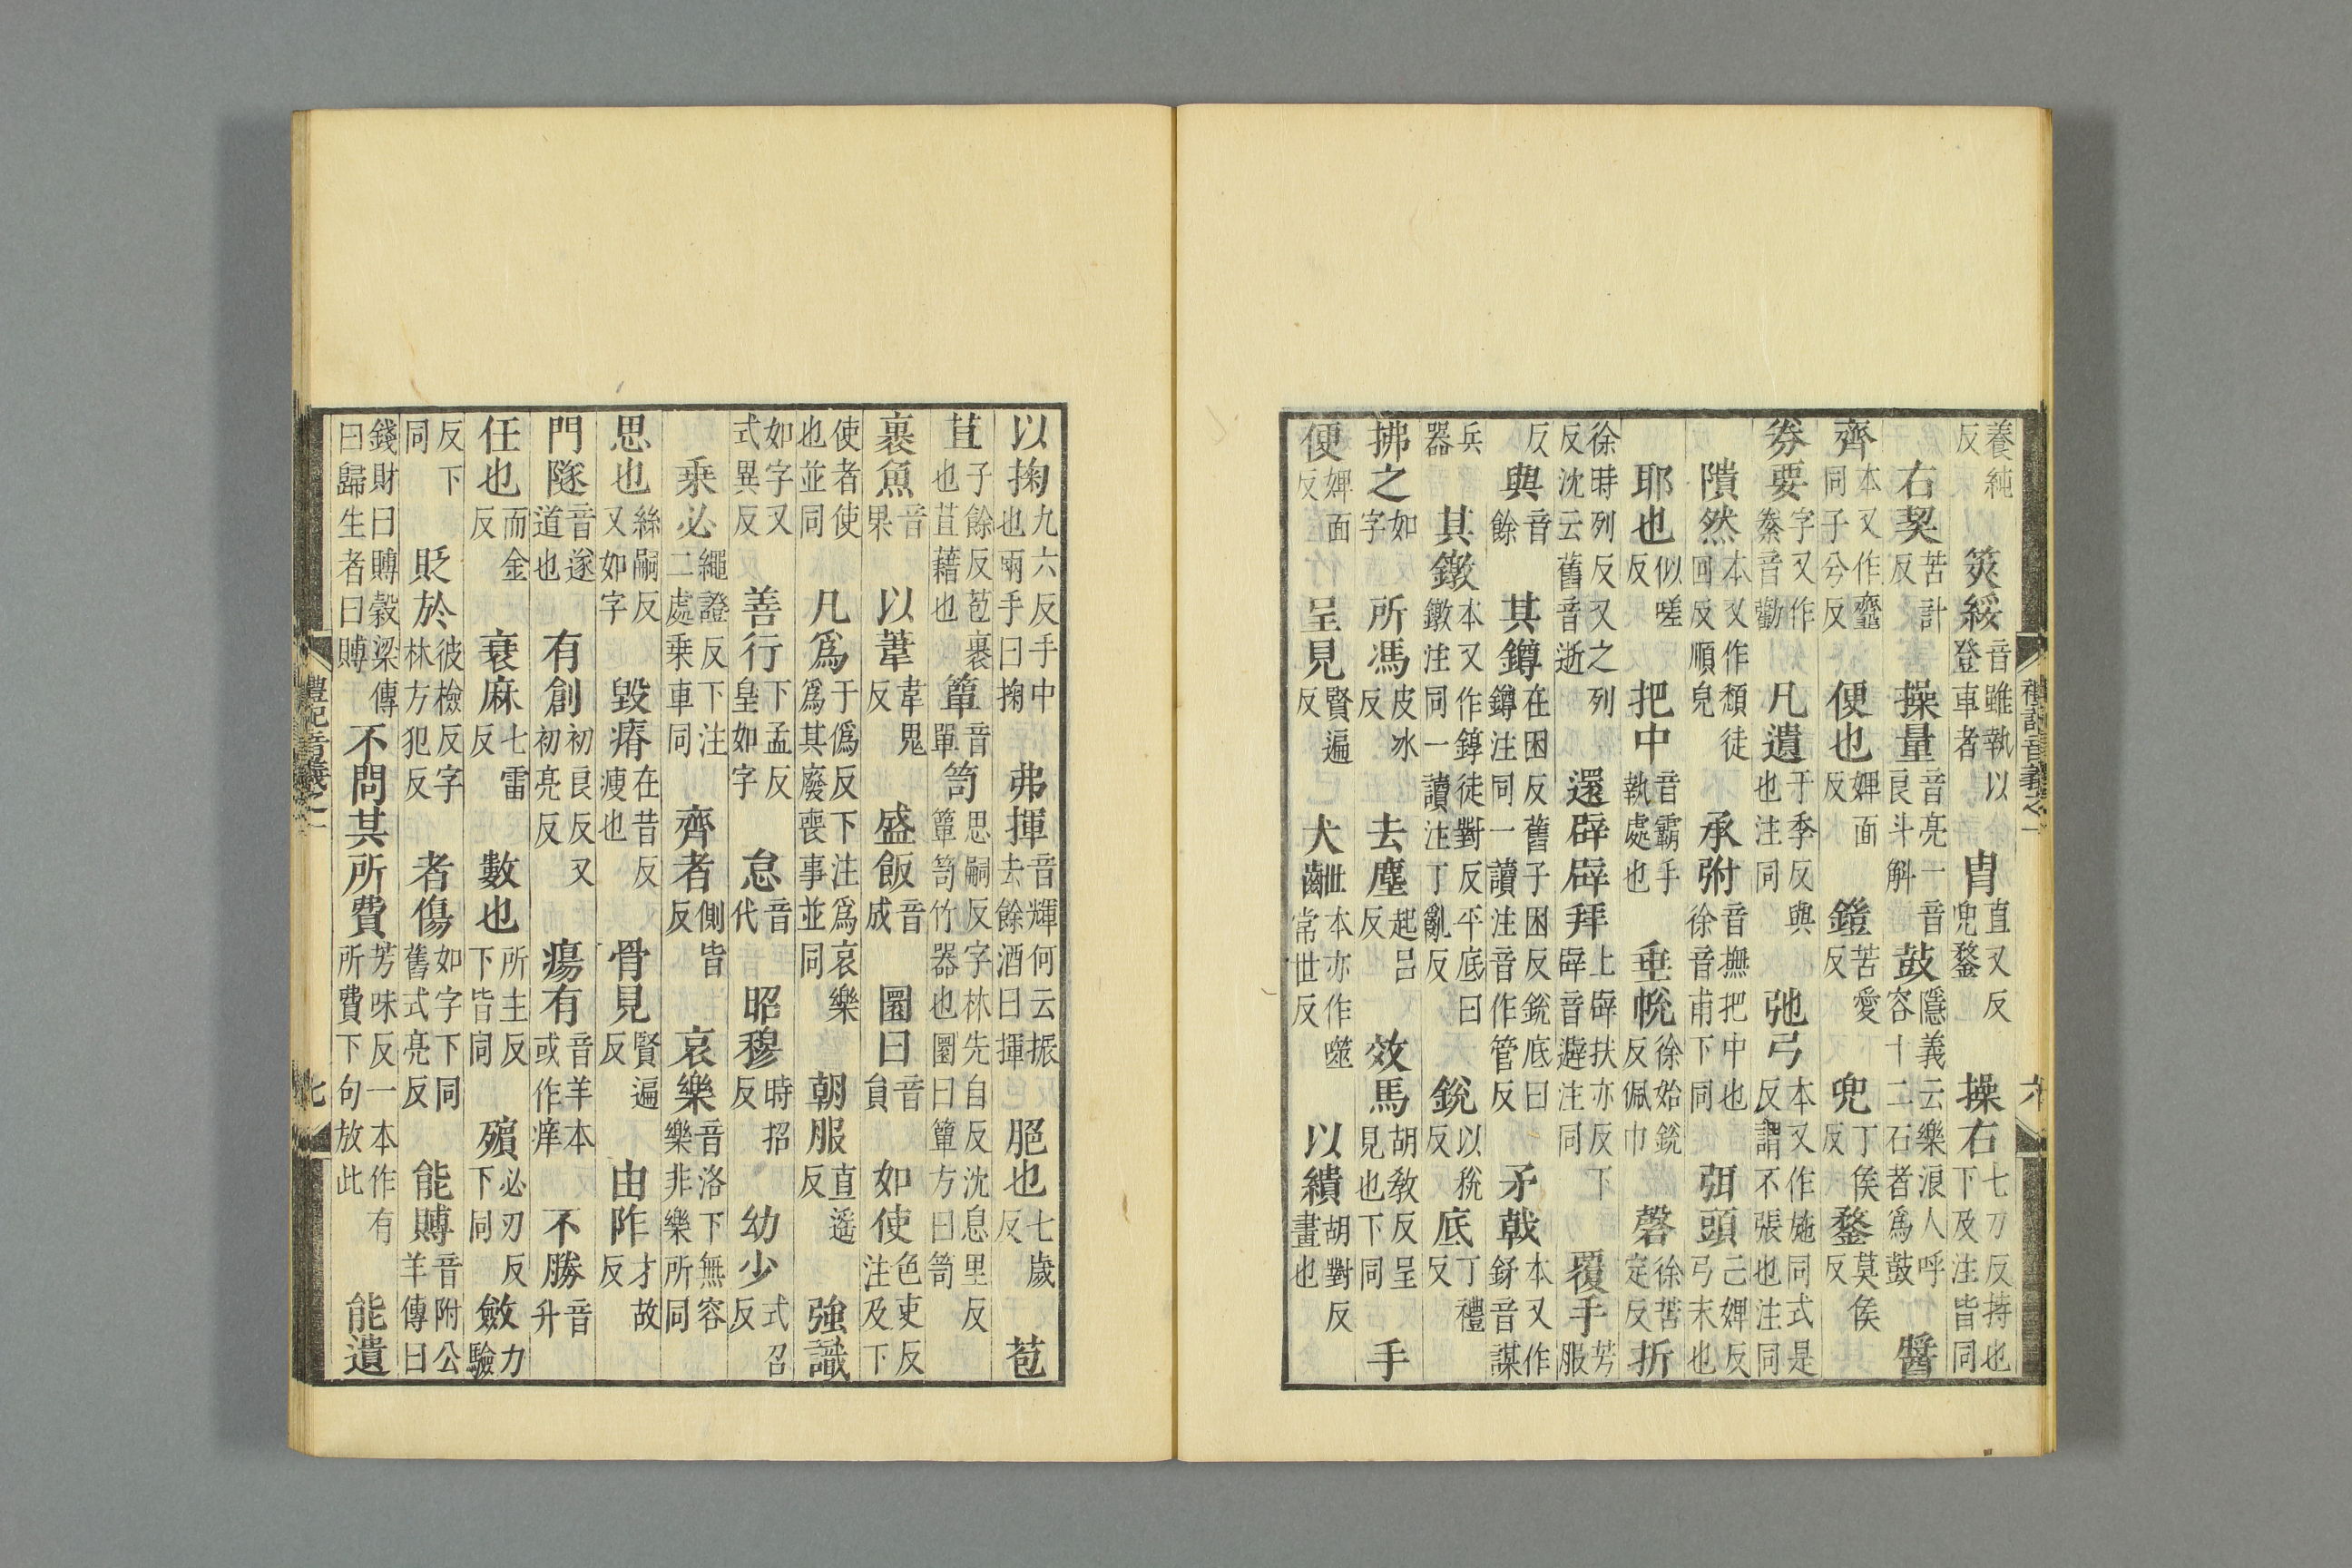 禮記音義之一 六
養純反 筴綏音雖執以登車者 胄直又反兜鍪 操右七刀反持也下及注皆同
右契苦計反 操量音亮一音良斗斛 鼓隱義云樂浪人呼容十二石者爲鼓 醬
齊本又作齏同子兮反 便也婢面反 鎧苦愛反 兜丁侯反 鍪莫侯反
劵要字又作絭音勸 凡遺于季反與也注同 弛弓本又作㢮同式是反謂不張也注同
隤然本又作頽徒回反順皃 承弣音撫把中也徐音甫下同 弭頭亡婢反弓末也
耶也似嗟反 把中音霸手執處也 垂帨徐始銳反佩巾 磬徐苦定反 折
徐時列反又之列反沈云舊音逝 還辟辟拜上辟扶亦反下辟音避注同 覆手芳服
反 與音餘 其鐏在困反舊子困反銳底曰鐏注同一讀注音作管反 矛戟本又作釾音謀
兵器 其鐓本又作錞徒對反平底曰鐓注同一讀注丁亂反 銳以稅反 底丁禮反
拂之如字 所馮皮冰反 去塵起呂反 效馬胡教反呈見也下同 手
便婢面反 呈見賢遍反 犬齛本亦作噬常世反 以繢胡對反畫也
以掬九六反手中也兩手曰掬 弗揮音輝何云振去餘酒曰揮 脃也七歲反 苞
苴子餘反苞裹也苴藉也 簞音單 笥思嗣反字林先自反沈息里反簞笥竹器也圜曰簞方曰笥
裹魚音果 以葦韋鬼反 盛飯音成 圜曰音員 如使色吏反注及下
使者使也並同 凡爲于僞反下注爲哀樂爲其廢喪事並同 朝服直遥反 強識
如字又式異反 善行下孟反皇如字 怠音代 昭穆時招反 幼少式召反
乗必繩證反下注二處乗車同 齊者側皆反 哀樂音洛下無容樂非樂所同
思也絲嗣反又如字 毀瘠在昔反瘦也 骨見賢遍反 由阼才故反
門隧音遂道也 有創初良反又初亮反 瘍有音羊本或作痒 不勝音升
任也而金反 衰麻七雷反 數也所主反下皆同 殯必刃反下同 斂力驗
反下同 貶於彼檢反字林方犯反 者傷如字下同舊式亮反 能賻音附公羊傳曰
錢財曰賻穀梁傳曰歸生者曰賻 不問其所費芳味反一本作有所費下句放此 能遺
禮記音義之一 七